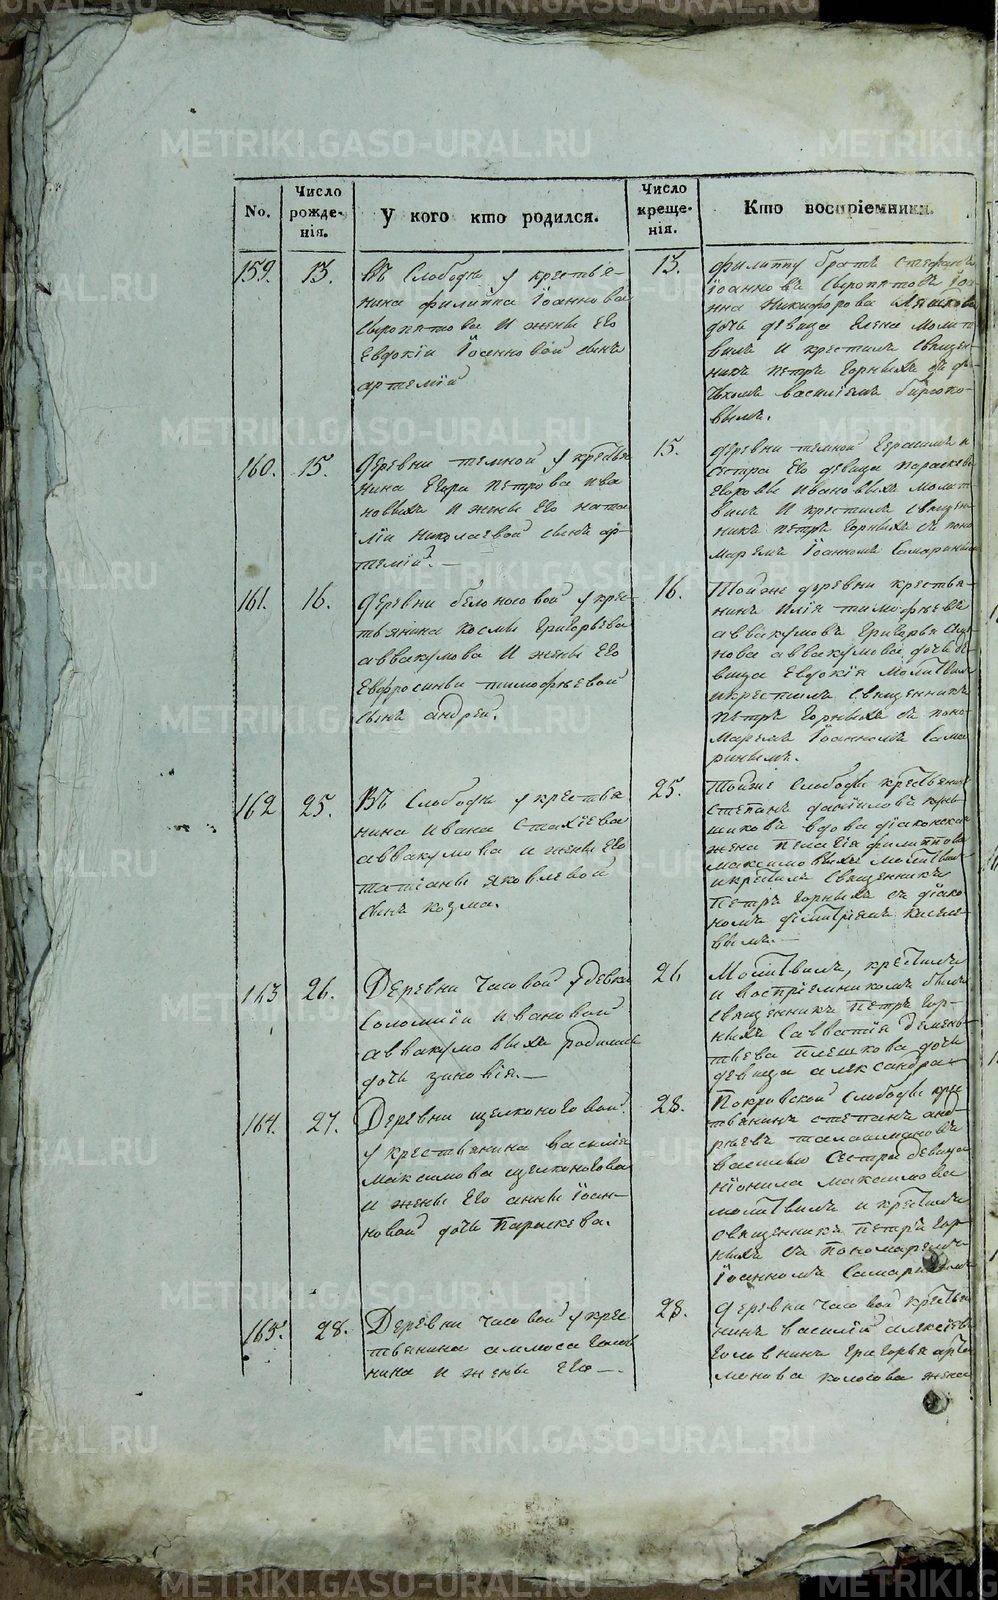 No.
Число рожде-
нія.
У кого кто родился.
Число
креще-
нія.
Кто воспріемники.
159. 13.
Въ Слободѣ у крестья-
нина Филиппа Іоаннова
Сыропятова и жены его
Евдокіи Іоанновой сынъ
Артемій
13.
Филиппу братъ Стефанъ
Іоанновъ Сыропятовъ Іоа
нна Никифорова
дочь девица Елена молит
вилъ и крестилъ Священ-
никъ Петръ Горныхъ съ дь-
Василіемъ Бирюко-
вымъ.
160. 15.
Деревни Темной у крестья
нина Егора Петрова Ива
новыхъ и жены его Ната
ліи Николаевой сынъ Ар-
темій. —
15.
Деревни Темной Герасимъ и
сестра его девица Параскева
Егоровы Ивановыхъ молит
вилъ и крестилъ Священ-
никъ Петръ Горныхъ съ поно
маремъ Іоанномъ Самаринымъ
161. 16.
Деревни Белоносовой у крес-
тьянина Космы Григорьева
Аввакумова и жены его
Евфросиньи Тимофѣевой
сынъ Андрей.
16.
Той же деревни крестья-
нинъ Илія Тимофѣевъ
Аввакумовъ Григорья
нова Аввакумова дочь де
вица Евдокія молитвилъ
и крестилъ Священникъ
Петръ Горныхъ съ поно-
маремъ Іоанномъ Сама
ринымъ.
162 25.
Въ Слободѣ у крестья
нина Ивана Стахіева
Аввакумова и жены его
Татіаны Яковлевой
сынъ Козма.
25.
Той же Слободы крестьянинъ
Степанъ Даніиловъ
шиковъ вдова діаконская
жена Пелагія Филиппова
Максимовыхъ молитвилъ
и крестилъ Священникъ
Петръ Горныхъ съ діако
номъ Димитріемъ Киселе-
вымъ. —
163 26.
Деревни Часовой у девки
Соломіи Ивановой
Аввакумовыхъ родилась
дочь Зиновія. —
26
Молитвилъ, крестилъ
и воспріемникомъ былъ
Священникъ Петръ Гор-
ныхъ Савватія Демень
тьева Плешкова дочь
девица Александра
164. 27.
Деревни Щелконоговой
у крестьянина Василія
Максимова Щелконогова
и жены его Анны Іоан-
новой дочь Параскева.
28.
Покровской Слободы крес
тьянинъ Степанъ Анд-
рѣевъ Талашмановъ
Василью сестра девица
Ніонила Максимова
молитвилъ и крестилъ
Священникъ Петръ Гор-
ныхъ съ пономаремъ
Іоанномъ Самаринымъ
165. 28.
Деревни Часовой у крес
тьянина Аммоса Голов
нина и жены его —
28.
Деревни Часовой крестья
нинъ Василій Алексѣевъ
Головнинъ Григорья Арта
монова Колосова жена
METRIKI.GASO-URAL.RU